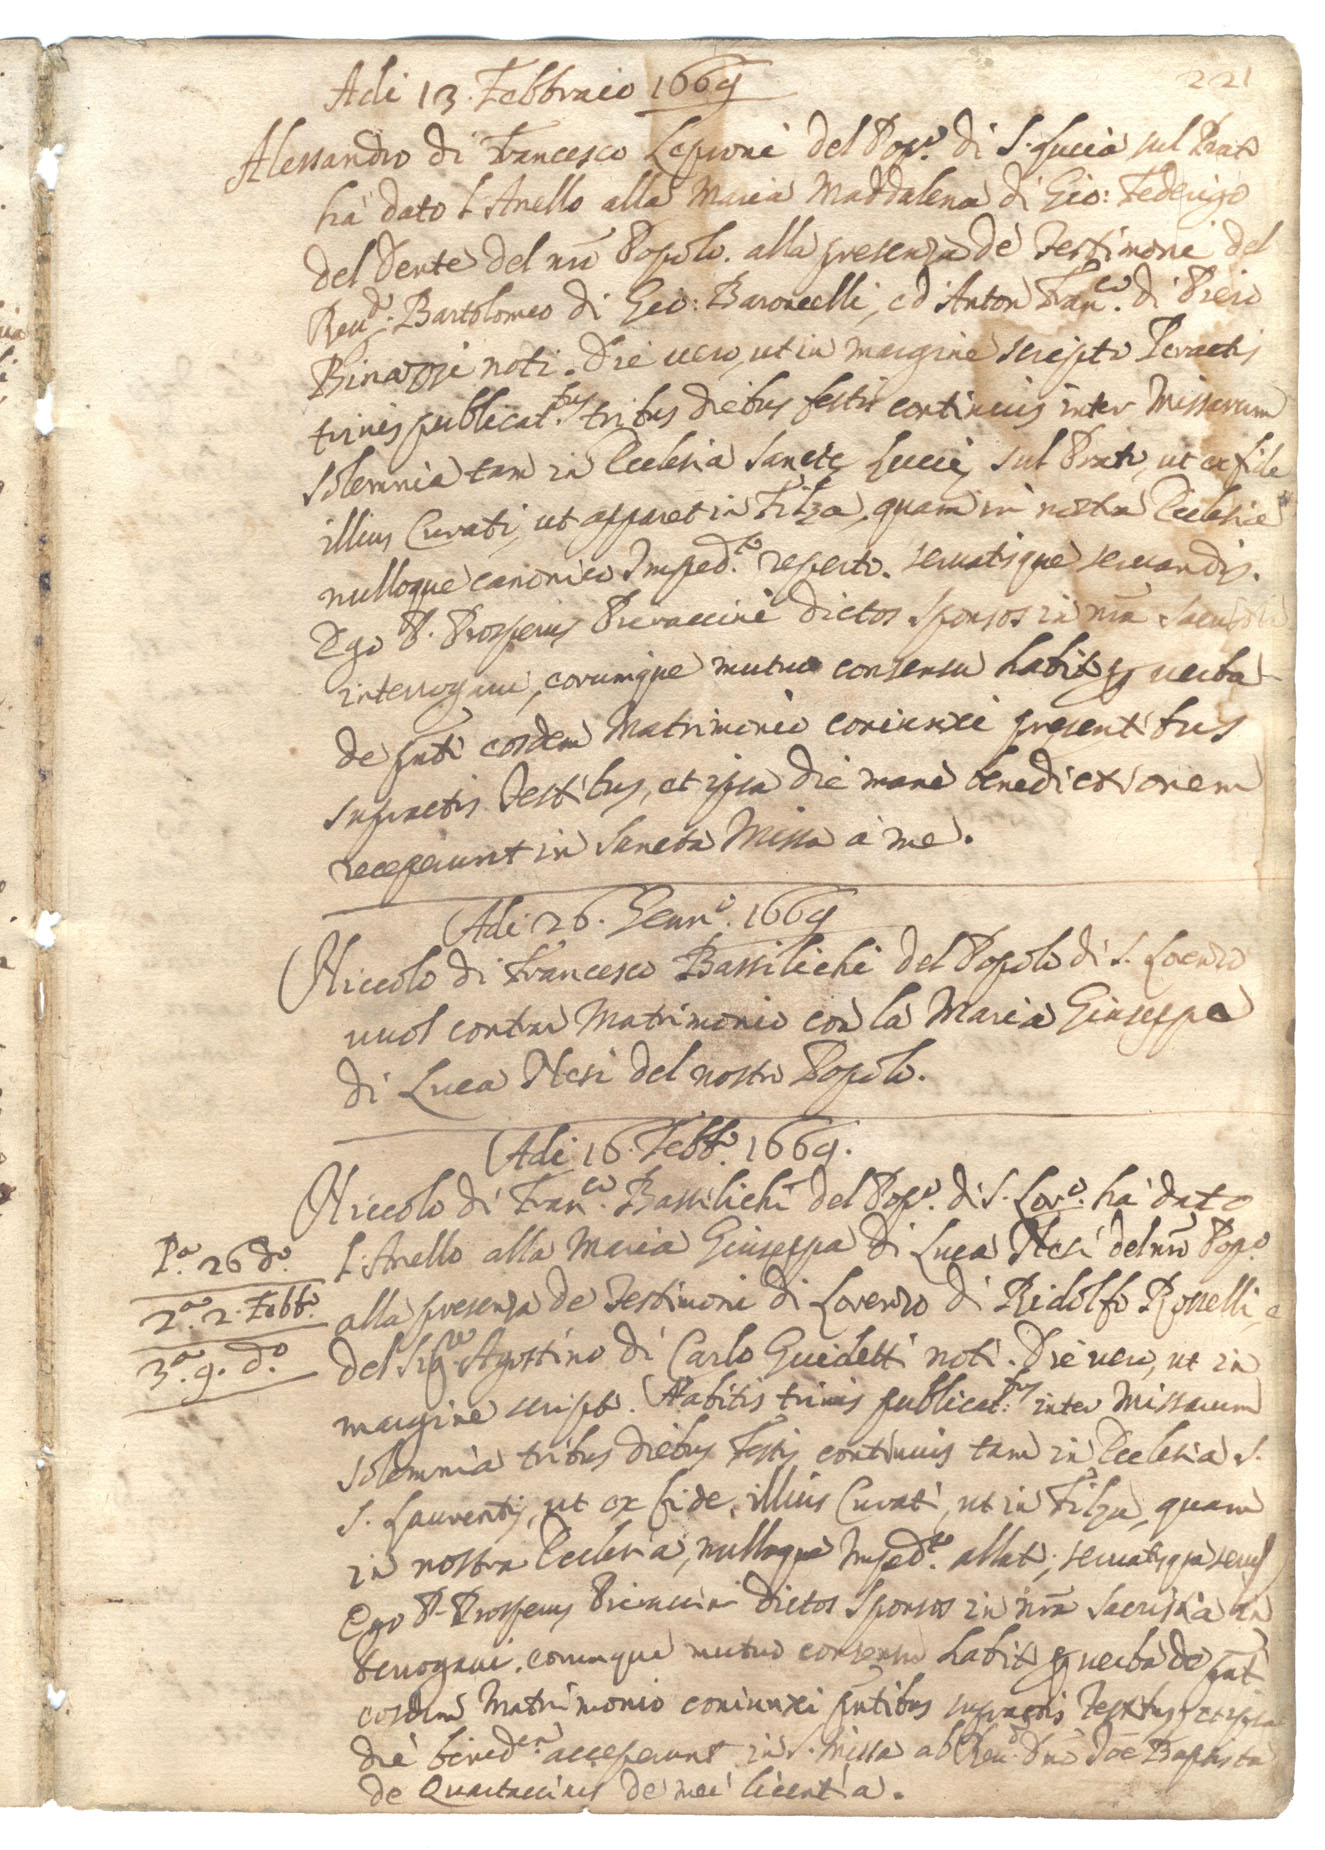 221
Adi 13. Febbraio 1669
Alessandro di Francesco Leproni del Pop.o di S. Lucia sul Prato
hà dato l'Anello alla Maria Maddalena di Gio: Federigo
del Dente del nro Popolo. alla presenza de Testimoni del
Reud.o Bartolomeo di Gio: Baroncelli, ed Anton Fran.co di Piero
Binazzi noti. Die uero, ut in margine scripto Peractis
trinis publicat.bus tribus diebus festis continuis inter Missarum
solemnia tam in Ecclesia Sancte Lucie sul Prato, ut ex fide
illius Curati, ut apparet in Filza, quam in nostra Ecclesia
nulloque canonico Imped.to reperto. seruatisque seruandis.
Ego P. Prosperus Pieraccini dictos sponsos in nra
interrogaui, eorumque mutuo consensu habito p uerba
de pnti eosdem Matrimonio coniunxi presentibus
supractis Testibus, et ipsa die mane benedictionem
receperunt in Sancta Missa a me.
Adi 26. Genn.o 1669
Niccolo di Francesco Bassilichi del Popolo di S. Lorenzo
uuol contrar Matrimonio con la Maria Giuseppa
di Luca Nesi del nostro Popolo.
Adi 16. Febb.o 1669.
Niccolo di Fran.co Bassilichi del Pop.o di S. Lor.o hà dato
P.a 26 d.o
l'Anello alla Maria Giuseppa di Luca Nesi del nro Pop.o
2.a 2. Febb.o
alla presenza de Testimoni di Lorenzo di Ridolfo Rosselli, e
3.a 9. d.o
del Sig.re Agostino di Carlo Guidetti noti. Die uero, ut in
margine scripto. Habitis trinis publicat:bus inter Missarum
solemnia tribus diebus Festis continuis tam in Ecclesia S.
S. Laurentij, ut ex fide illius Curati, ut in Filza, quam
in nostra Ecclesia, nulloque Imped.to allat; seruatisque
Ego P. Prosperus Pieraccini dictos Sponsos in nra Sacristia in
terrogaui. eorumque mutuo consensu habito p uerba de pnt
eosdem Matrimonio coniunxi pntibus supractis Testibus, et ipsa
die bened.em acceperunt in S. Missa ab Reu.do Dno Joe Baptista
de Quartaccinis de mei licentia.